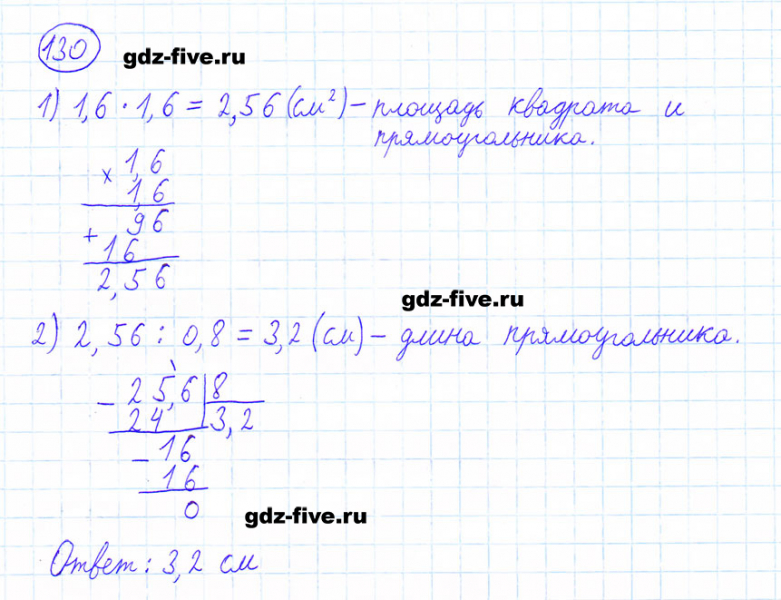 130
gdz-five.ru
1) 1,6 · 1,6 = 2,56 (см²) – площадь квадрата и
прямоугольника.
× 1,6
1,6
+ 96
16
2,56
gdz-five.ru
2) 2,56 : 0,8 = 3,2 (см) – длина прямоугольника.
– 25,6 | 8
24 | 3,2
– 16
16
0
gdz-five.ru
Ответ: 3,2 см